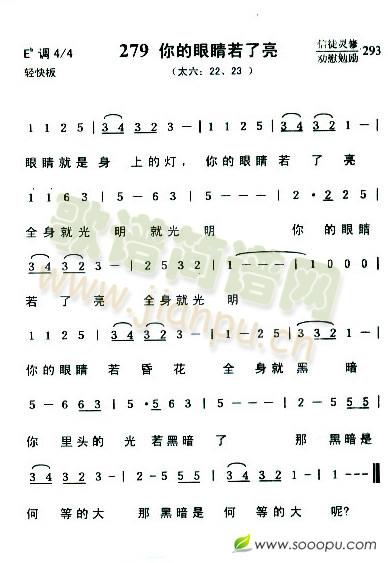 E♭ 调 4/4 279 你的眼睛若了亮 信徒灵修 293
轻快板 (太六:22、23) 劝慰勉励
1 1 2 5 | 3 4 3 2 3 - | 1 1 2 5 | 3 4 3 2 3 - |
眼睛就是身 上的灯, 你的眼睛若 了亮
1 - 1 6 3 | 5 - 1 6 3 | 5 - - - | 2 · 2 2 5 |
全身就光 明就光 明 你 的眼睛
3 4 3 - - | 2 5 3 2 | 1 - - - | 1 0 0 0 |
若了亮 全身就光 明
1 1 2 5 | 3 4 3 2 3 - | 1 1 2 5 | 3 4 3 2 3 - |
你的眼睛若 昏花 全身就黑 暗
5 - 6 6 3 | 5 - 6 · 3 | 2 3 2 1 | 2 - 2 5 5 |
你 里头的 光 若黑暗 了 那 黑暗是
3 4 3 2 3 - | 2 - 2 5 5 5 | 3 4 3 2 1 - |
何 等的大 那 黑暗是何 等的大 呢?
歌谱简谱网
www.jianpu.cn
www.sooopu.com